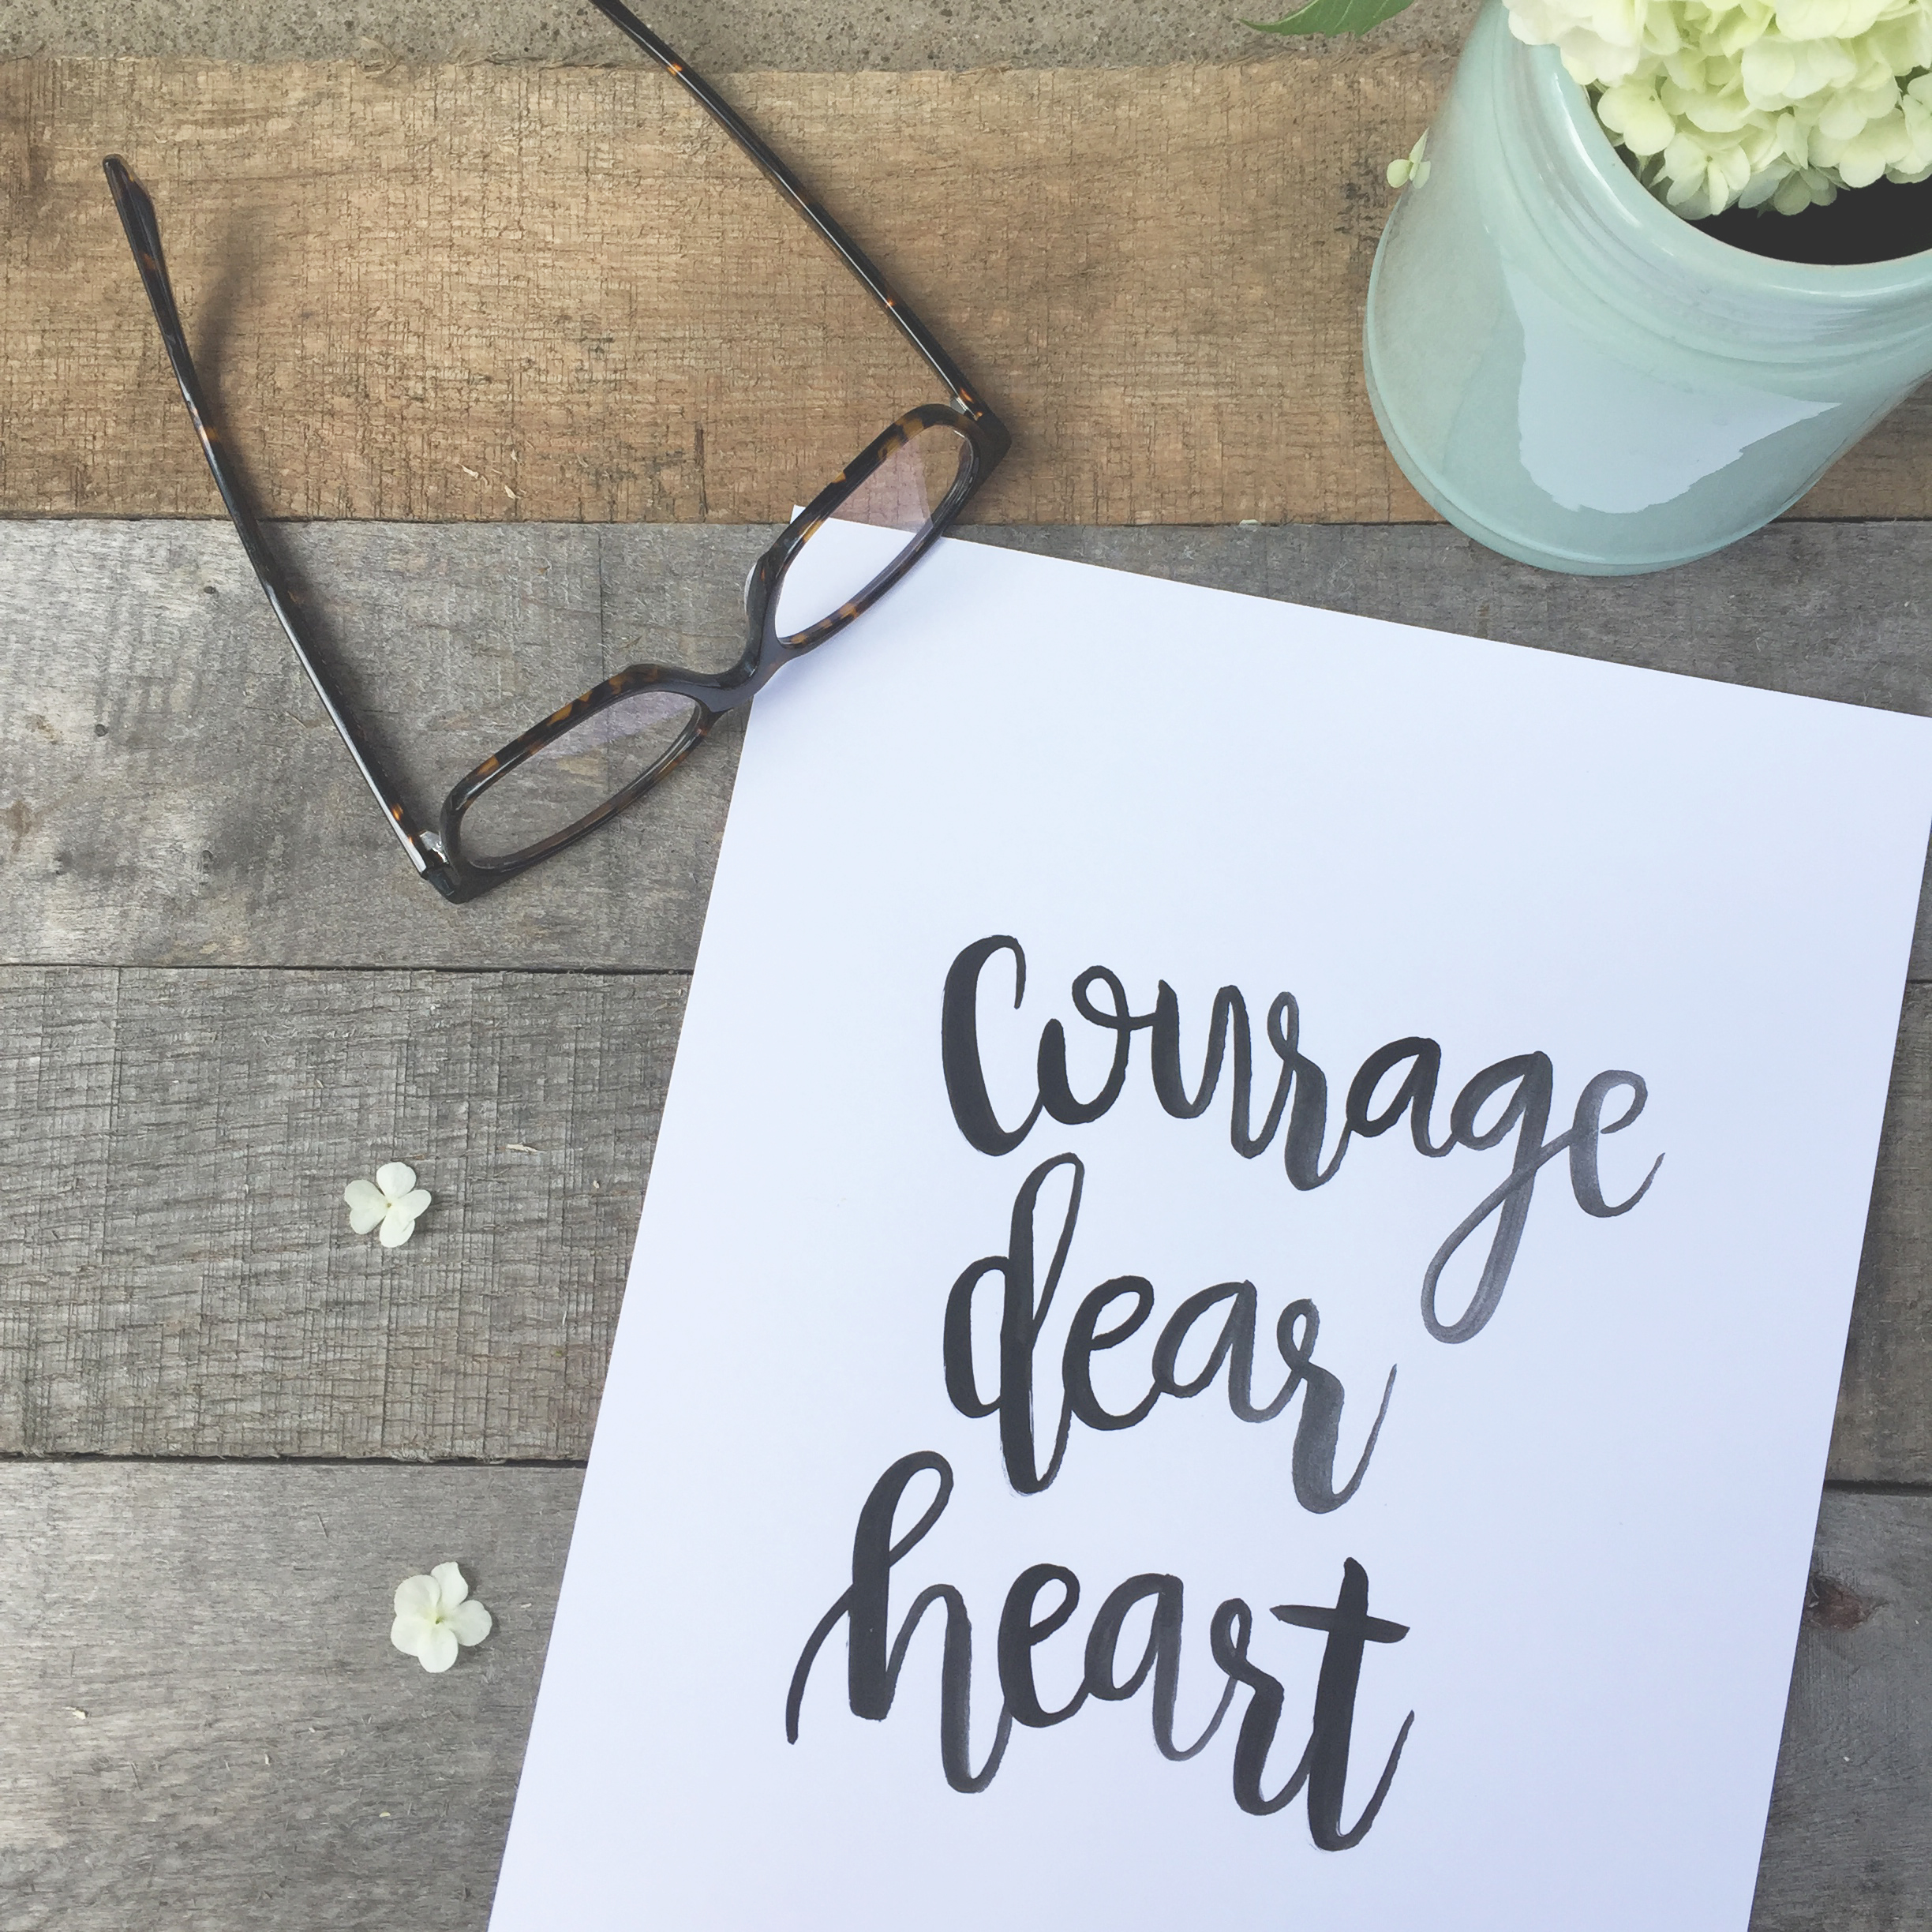 Courage
dear
heart